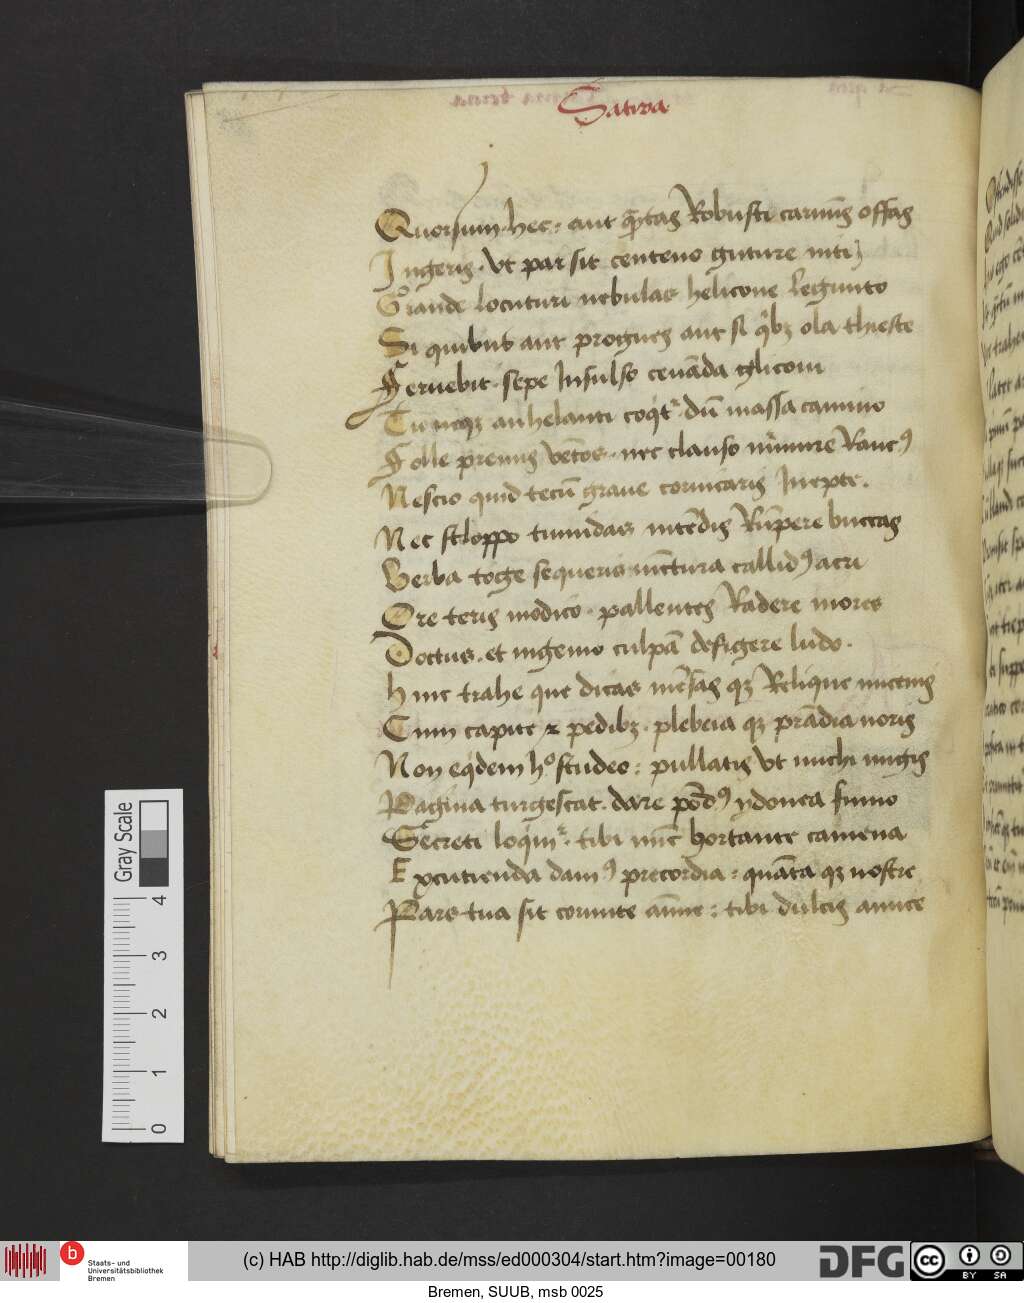 Satira
Quorsum hec: aut q̄ntas Robusti carmīs offas
Ingeris. Vt par sit centeno guture niti
Grande locuturi nebulas helicone Legunto
Si quibus aut prognes aut si q̇bȝ olla thieste
Feruebit. sepe Insulso cenāda gliconi
Tu neqȝ anhelanti coqͥtʳ dū massa camino
Folle premis vētos. nec clauso mūmure Raucꝰ
Nescio quid tecū graue cornicaris Inepte.
Nec stloppo tumidas intēdis Rūpere buccas
Verba toge sequeris iūctura callidꝰ acri
Ore teris modico. pallentes Radere mores
Doctus. et ingenio culpā defigere ludo.
Hinc trahe que dicas mēsas qȝ Relique micenis
Cum capite ⁊ pedibȝ. plebeia qȝ prādia noris
Non eqͥdem hͦ studeo: pullatis Vt michi nugis
Pagina turgescat. dare pōdꝰ ydonea fumo
Secreti loqͥmʳ. tibi nūc hortante camena
Excutienda damꝰ precordia: quāta qȝ nostre
Pars tua sit cornute aīme: tibi dulcis amice
Gray Scale
4
3
2
1
0
b
Staats- und
Universitätsbibliothek
Bremen
(c) HAB http://diglib.hab.de/mss/ed000304/start.htm?image=00180
DFG
cc
BY SA
Bremen, SUUB, msb 0025